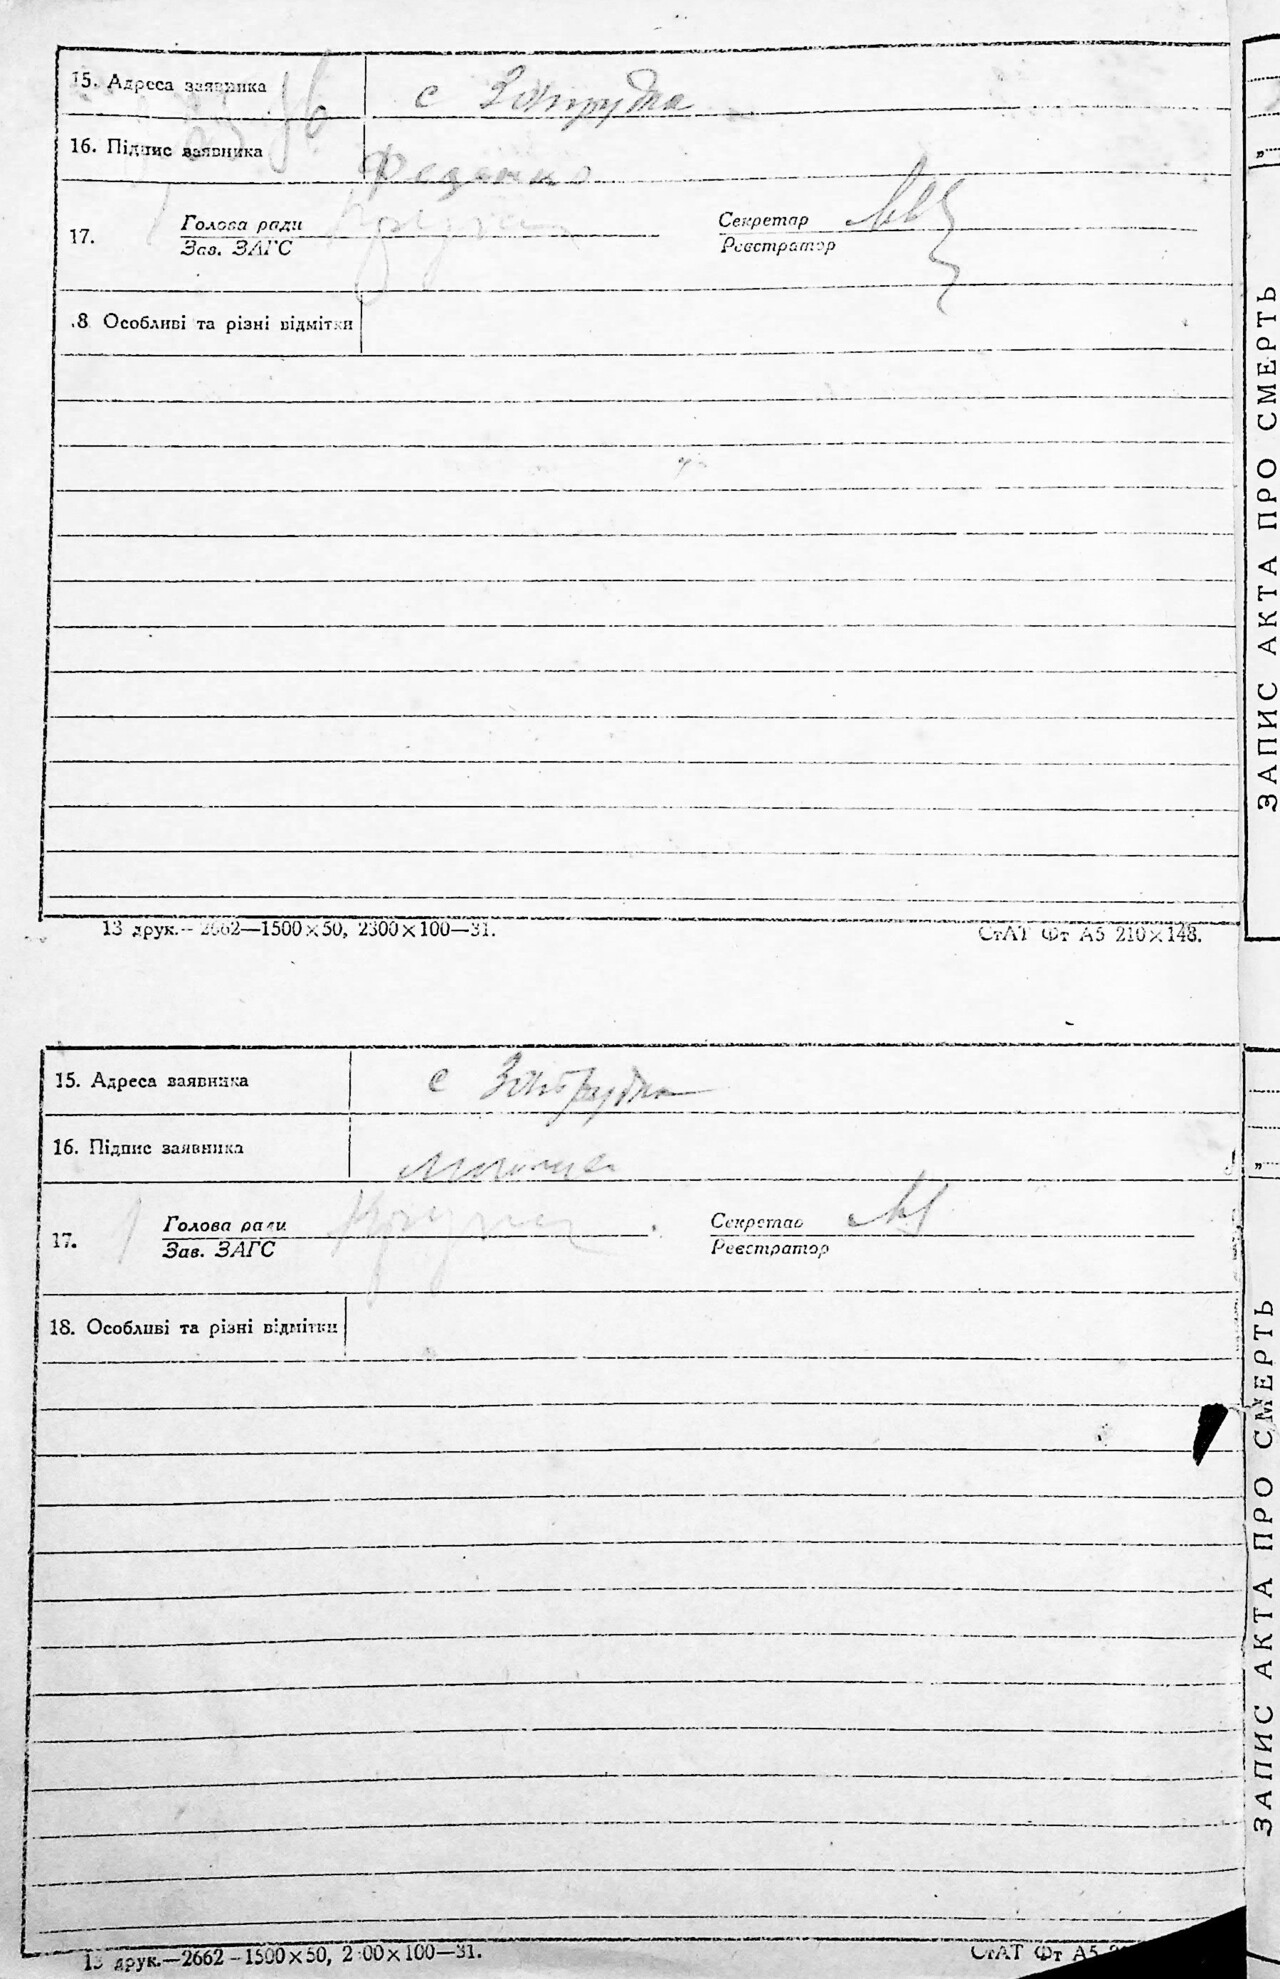 15. Адреса заявника с Затрудка
16. Підпис заявника
17. Голова ради Секретар
Зав. ЗАГС Реєстратор
.8 Особливі та різні відмітки
13 друк.—2662—1500×50, 2300×100—31. СтАТ Фт А5 210×148.
15. Адреса заявника с
16. Підпис заявника
17. Голова ради Секретар
Зав. ЗАГС Реєстратор
18. Особливі та різні відмітки
13 друк.—2662—1500×50, 2 00×100—31. СтАТ Фт А5
ЗАПИС АКТА ПРО СМЕРТЬ
ЗАПИС АКТА ПРО СМЕРТЬ